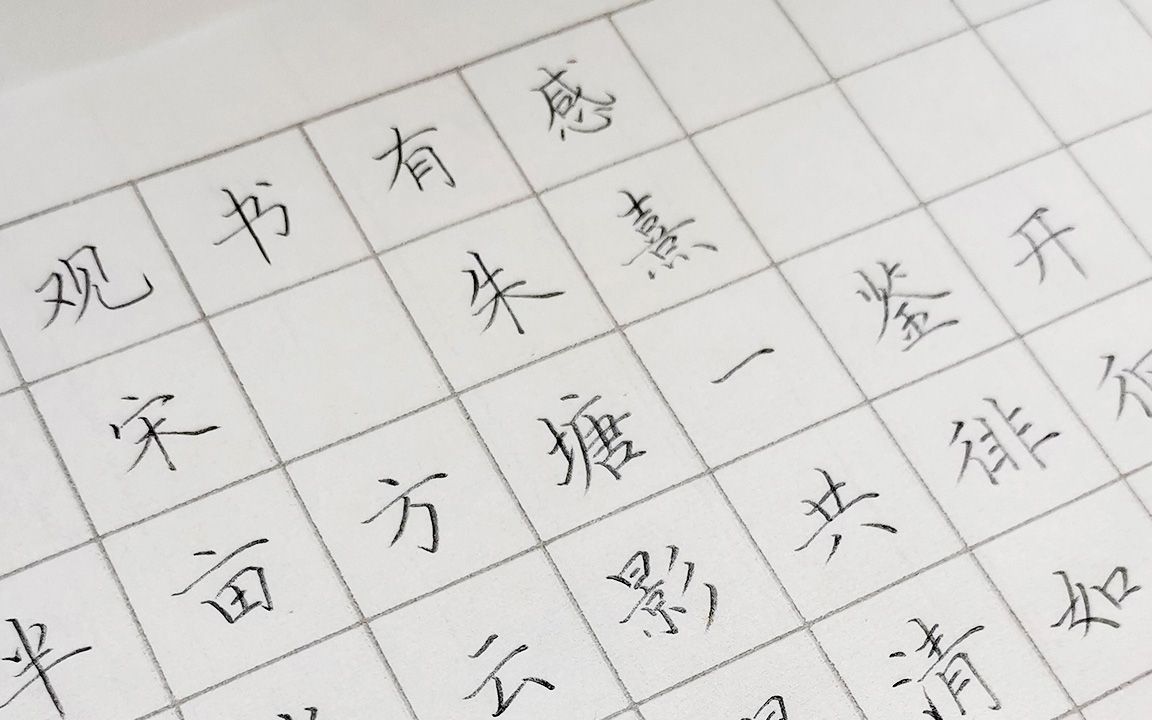 观书有感
宋 朱熹
半亩方塘一鉴开
云影共徘
清如